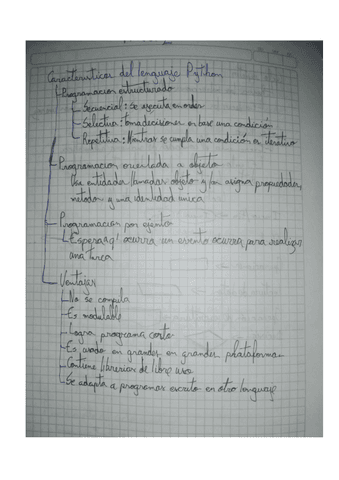 Caracteristicas del lenguaje Python
Programacion estructurado
Secuencial: Se ejecuta en orden
Selectiva: Toma decisiones en base una condición
Repetitiva: Mientras se cumpla una condición es iterativo
Programacion orientada a objeto
Usa entidades llamadas objeto y les asigna propiedades,
metodos y una identidad unica
Programación por evento
Espera q' ocurra un evento ocurra para realizar
una tarea
Ventajas
No se compila
Es modulable
Logra programa corto
Es usado en grandes en grandes plataforma
Contiene librerias de libre uso
Se adapta a programas escrito en otro lenguaje